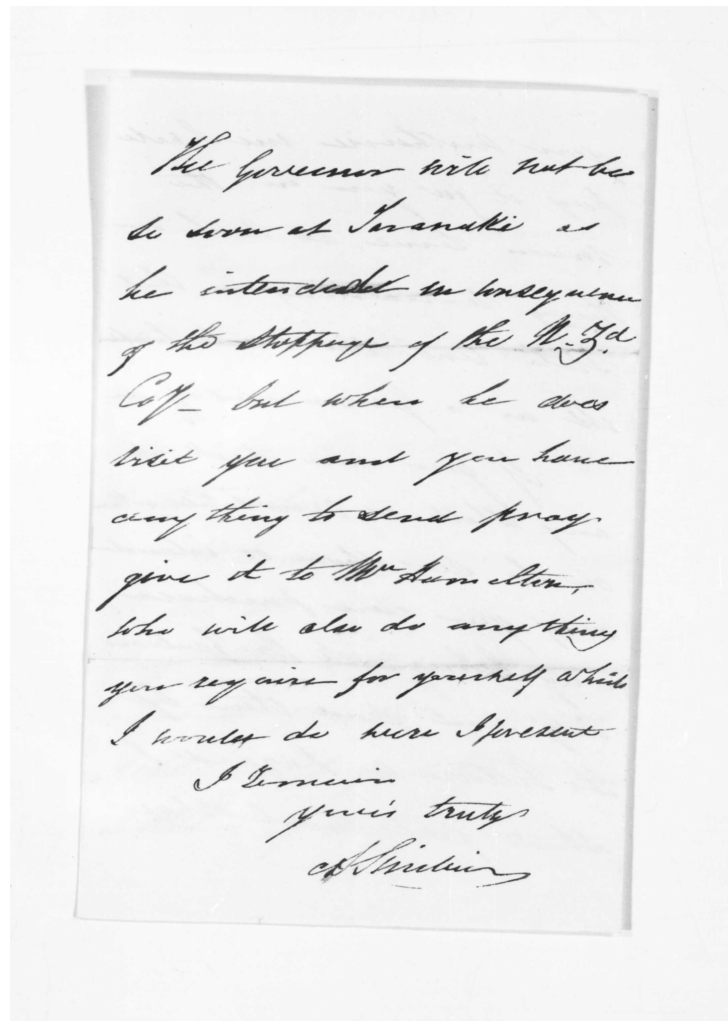 The Governor will not be
so soon at Taranaki as
he intended in consequence
of the stoppage of the N. Zd
Coy - but when he does
visit you and you have
anything to send pray
give it to Mr Hamilton,
who will also do anything
you require for yourself which
I would do were I present
I remain
yours truly
A Sinclair